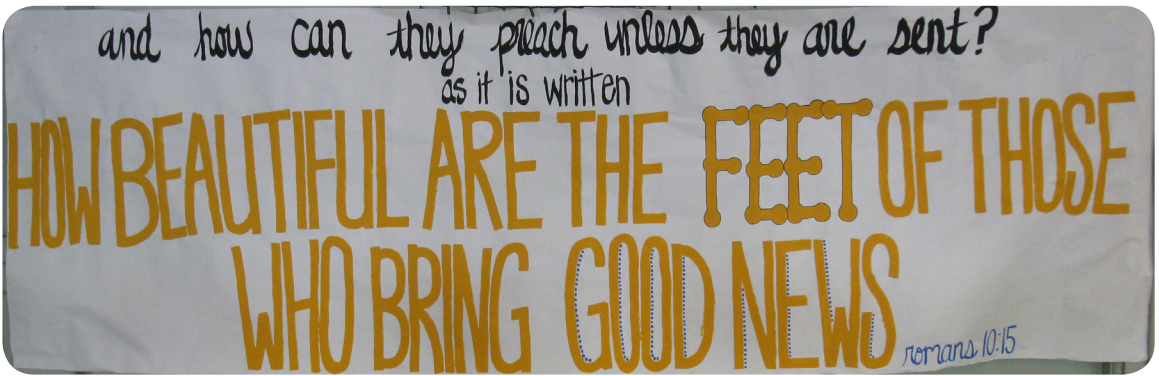 and how can they preach unless they are sent?
as it is written
HOW BEAUTIFUL ARE THE FEET OF THOSE
WHO BRING GOOD NEWS
romans 10:15